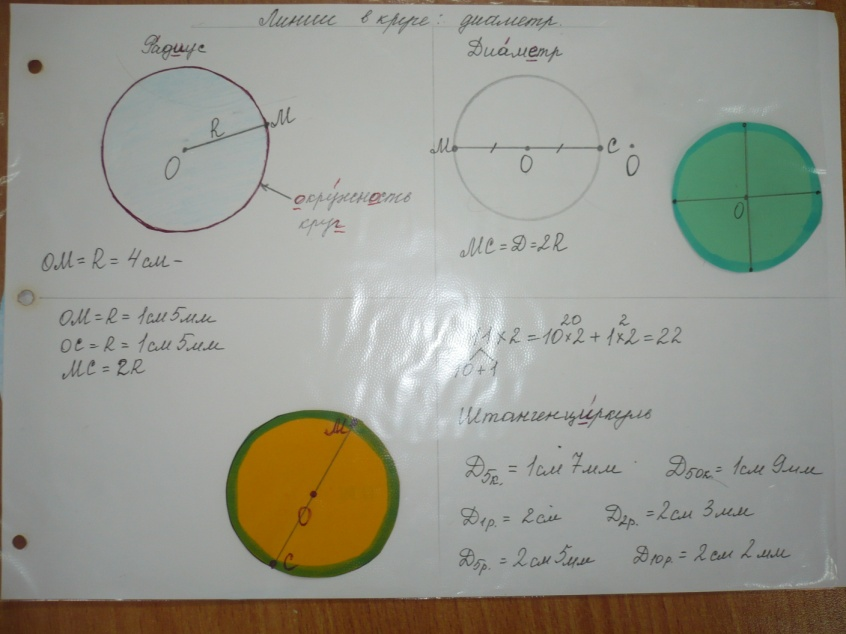 Линии в круге: диаметр.
Радиус
R
М
О
окружность
круг
ОМ = R = 4 см -
Диаметр
М
О
С
О
МС = D = 2R
О
ОМ = R = 1 см 5 мм
ОС = R = 1 см 5 мм
МС = 2R
М
О
С
20 2
11 × 2 = 10 × 2 + 1 × 2 = 22
10 + 1
Штангенциркуль
D5к. = 1 см 7 мм D50к. = 1 см 9 мм
D1р. = 2 см D2р. = 2 см 3 мм
D5р. = 2 см 5 мм D10р. = 2 см 2 мм